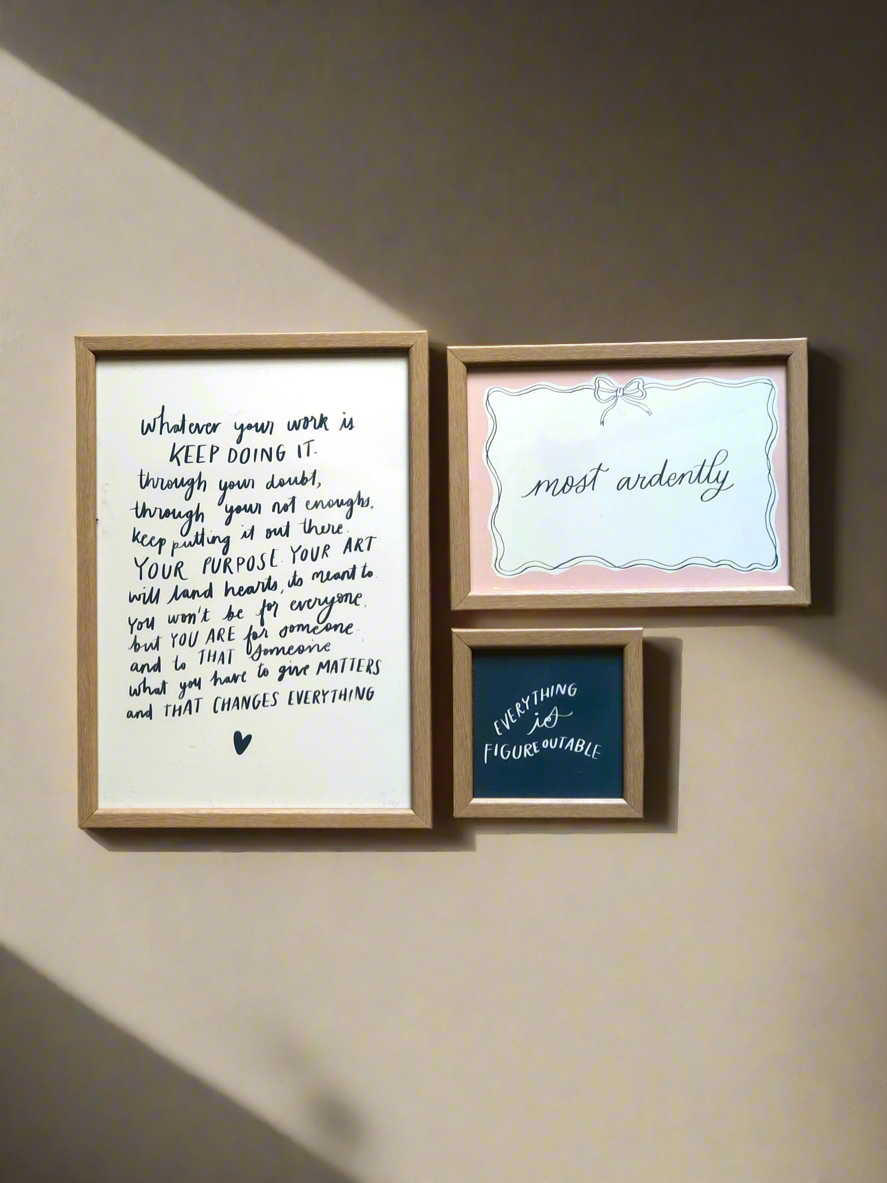 whatever your work is
KEEP DOING IT.
through your doubt,
through your not enoughs.
keep putting it out there.
YOUR PURPOSE. YOUR ART
will land hearts, its meant to.
you won't be for everyone.
but YOU ARE for someone.
and to THAT someone
what you have to give MATTERS
and THAT CHANGES EVERYTHING
most ardently
EVERYTHING
is
FIGUREOUTABLE